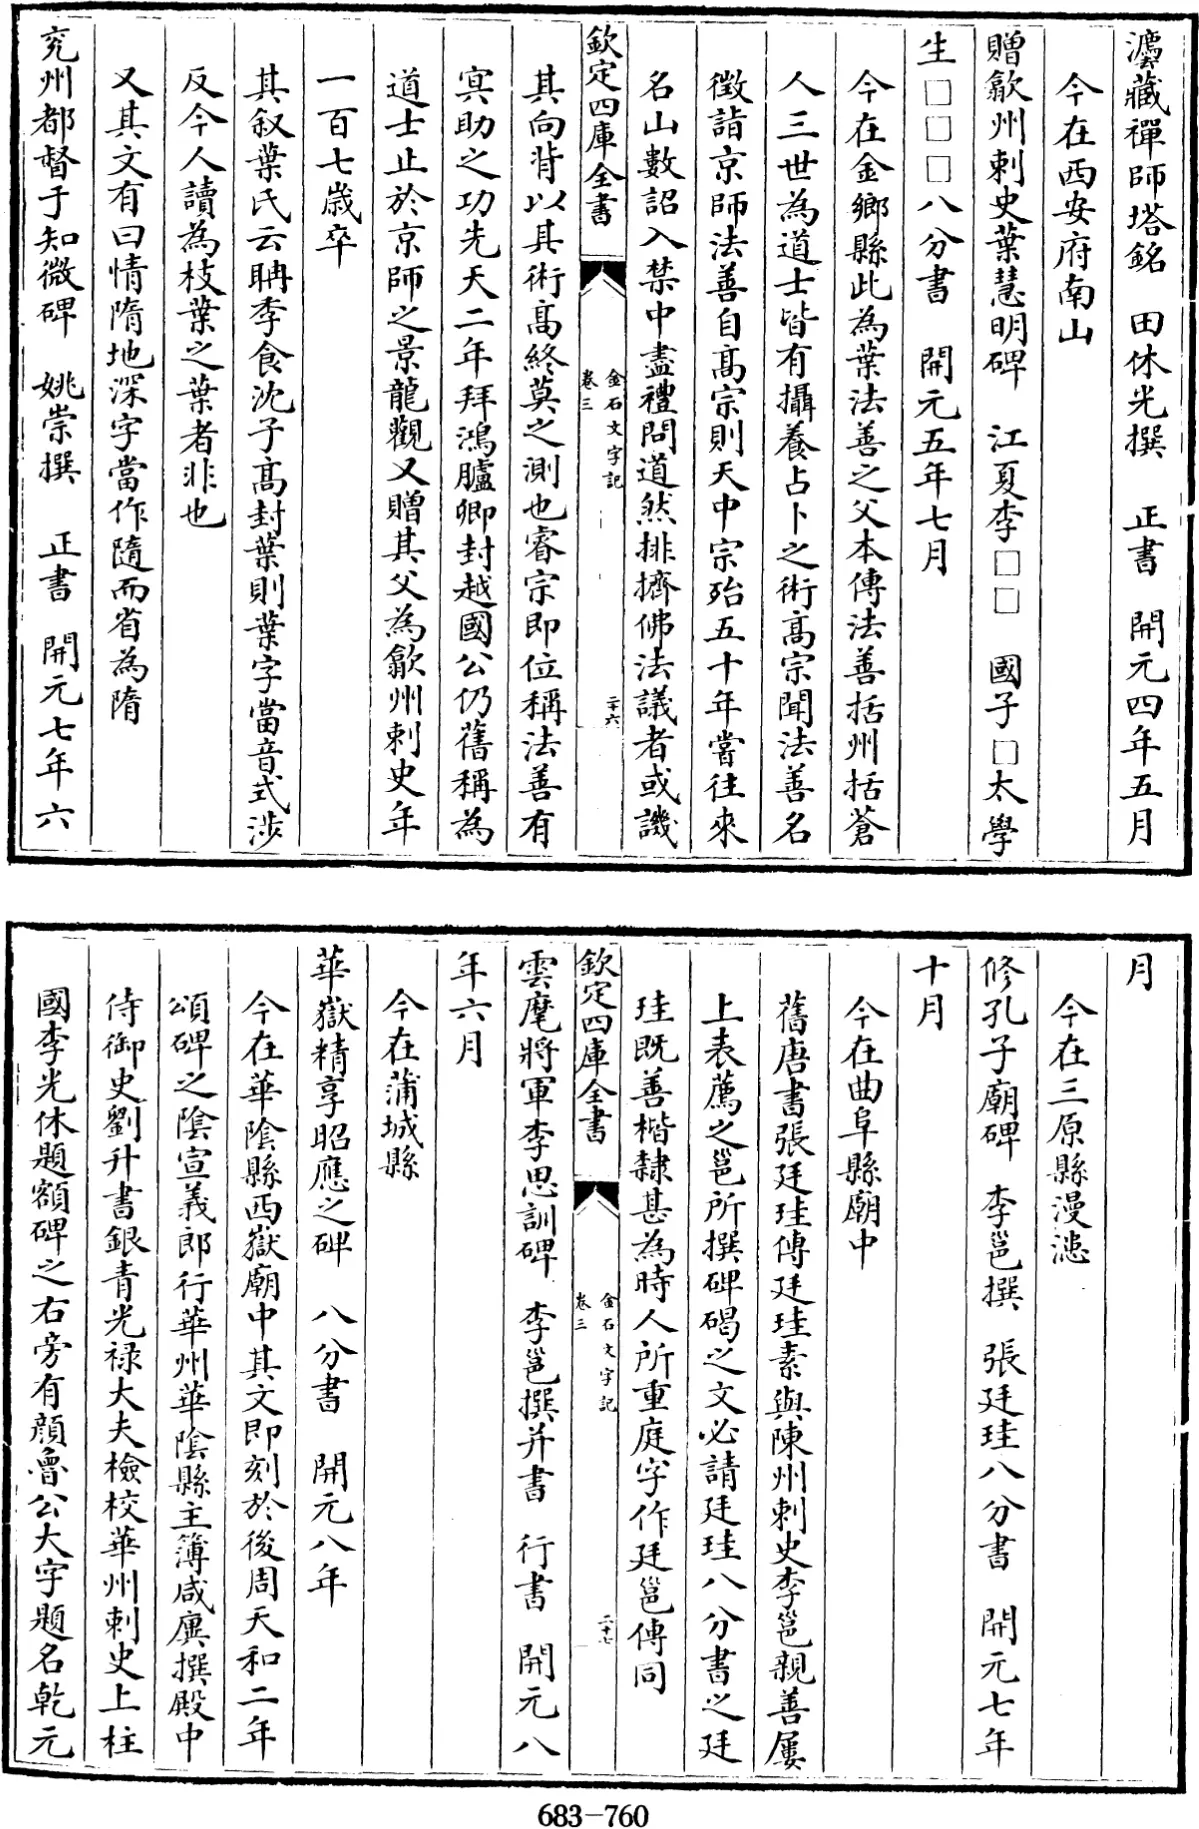 㶟藏禪師塔銘　田休光撰　正書　開元四年五月
今在西安府南山
贈歙州刺史葉慧明碑　江夏李□□　國子□太學
生□□□八分書　開元五年七月
今在金鄉縣此為葉法善之父本傳法善括州括蒼
人三世為道士皆有攝養占卜之術髙宗聞法善名
徵詣京師法善自髙宗則天中宗殆五十年嘗往來
名山數詔入禁中盡禮問道然排擠佛法議者或譏
欽定四庫全書
金石文字記
卷三
二十六
其向背以其術髙終莫之測也睿宗即位稱法善有
㝠助之功先天二年拜鴻臚卿封越國公仍舊稱為
道士止於京師之景龍觀又贈其父為歙州刺史年
一百七嵗卒
其叙葉氏云聃季食沈子髙封葉則葉字當音式涉
反今人讀為枝葉之葉者非也
又其文有曰情隋地深字當作隨而省為隋
兖州都督于知微碑　姚崇撰　正書　開元七年六
月
今在三原縣漫漶
修孔子廟碑　李邕撰　張廷珪八分書　開元七年
十月
今在曲阜縣廟中
舊唐書張廷珪傳廷珪素與陳州刺史李邕親善屢
上表薦之邕所撰碑碣之文必請廷珪八分書之廷
珪既善楷隸甚為時人所重庭字作廷邕傳同
欽定四庫全書
金石文字記
卷三
二十七
雲麾將軍李思訓碑　李邕撰并書　行書　開元八
年六月
今在蒲城縣
華嶽精享昭應之碑　八分書　開元八年
今在華隂縣西嶽廟中其文即刻於後周天和二年
頌碑之隂宣義郎行華州華隂縣主簿咸廙撰殿中
侍御史劉升書銀青光禄大夫檢校華州刺史上柱
國李光休題額碑之右旁有顔魯公大字題名乾元
683-760